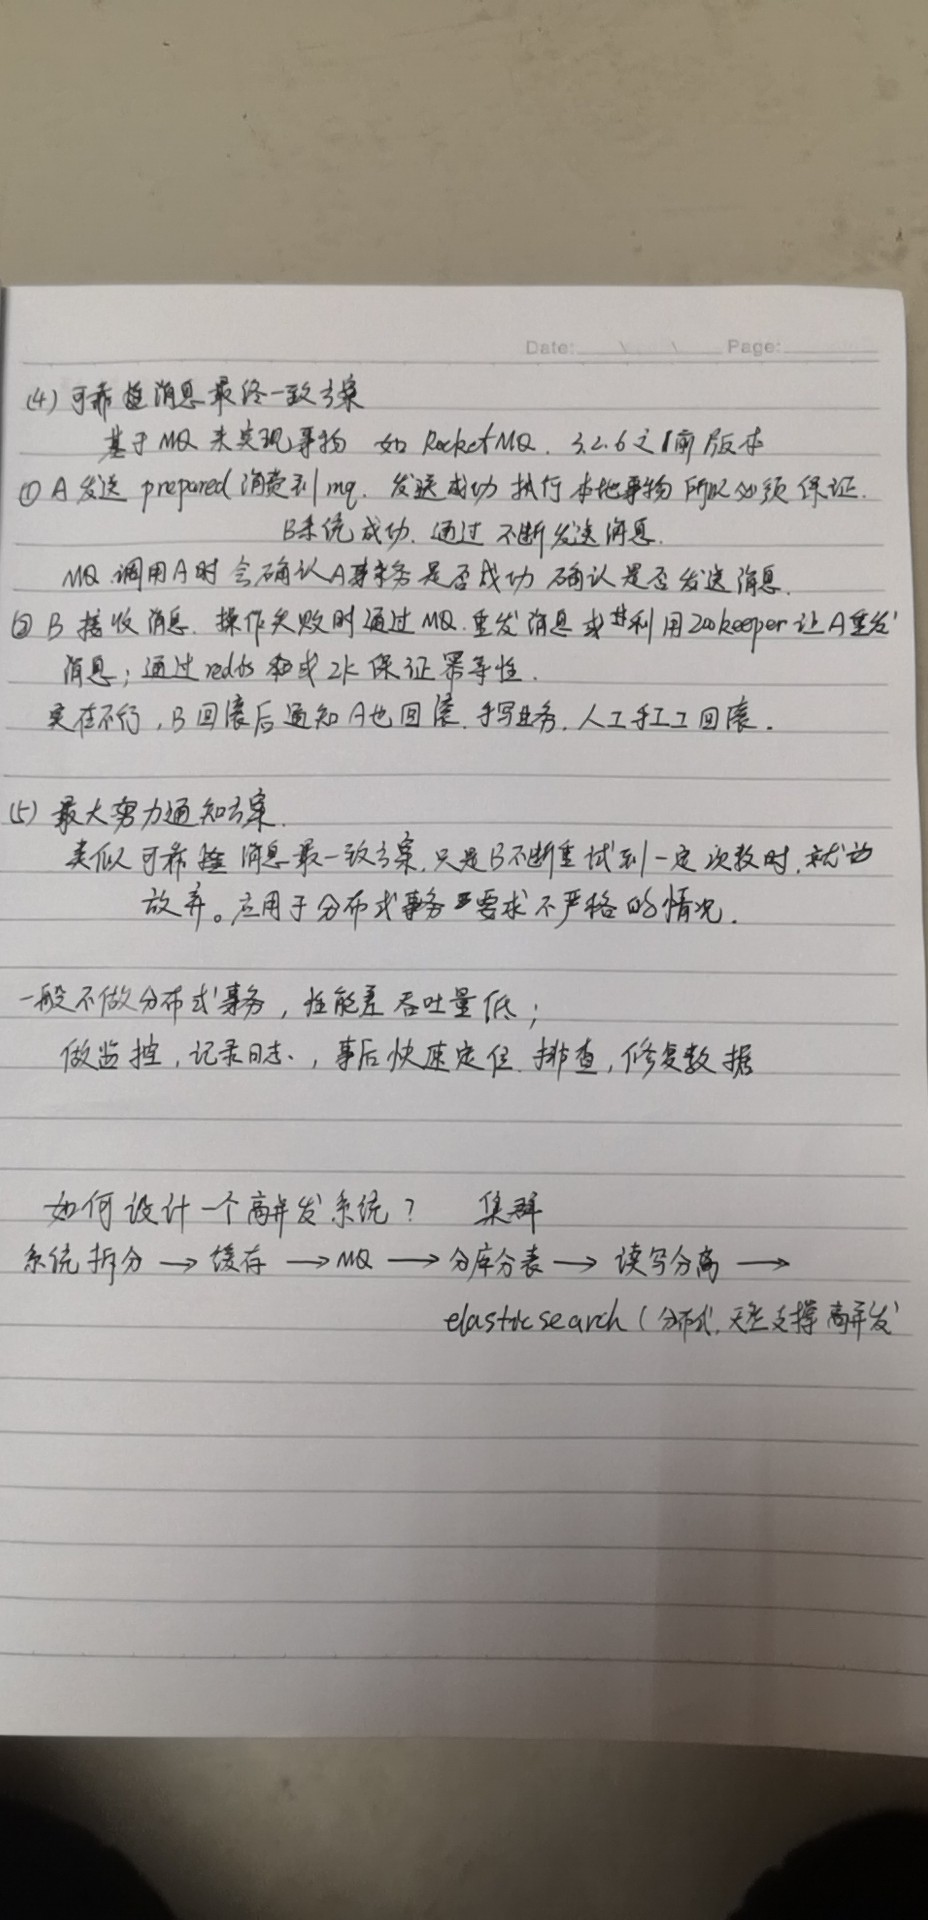 Date: Page:
(4) 可靠性消息最终一致方案
基于MQ来实现事物 如 RocketMQ. 3.2.6之前版本
① A发送 prepared消费到mq. 发送成功 执行本地事物 所以必须保证.
B系统成功. 通过 不断发送消息.
MQ 调用A时 会确认A事务是否成功 确认是否发送消息.
② B 接收消息. 操作失败时通过MQ.重发消息或利用zookeeper让A重发
消息; 通过redis 或 zk 保证幂等性.
实在不行, B回滚后通知A也回滚. 手写业务. 人工手工回滚.
(5) 最大努力通知方案.
类似可靠性消息最一致方案. 只是B不断重试到一定次数时, 就
放弃。应用于分布式事务要求不严格的情况.
一般不做分布式事务, 性能差 吞吐量低;
做监控, 记录日志, 事后快速定位. 排查, 修复数据
如何设计一个高并发系统? 集群
系统拆分 → 缓存 → MQ → 分库分表 → 读写分离 →
elasticsearch (分布式. 天生支撑高并发